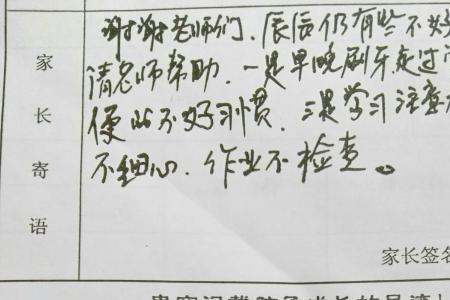 谢谢老师们、辰辰仍有些不好
请老师帮助、一是早晚刷牙走过
家长寄语
便的不好习惯、二是学习注意
不细心、作业不检查。
家长签名